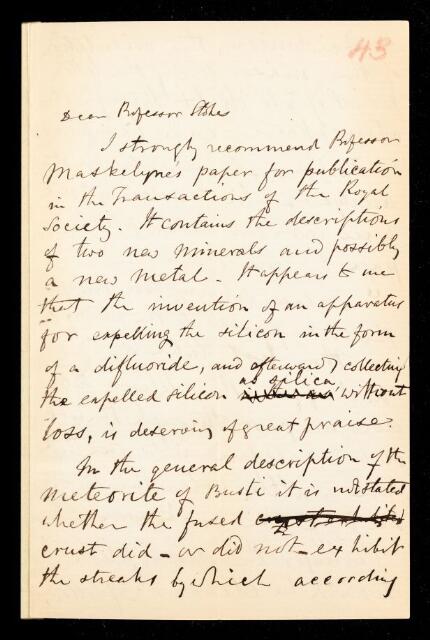 43
Dear Professor Stokes
I strongly recommend Professor
Maskelyne's paper for publication
in the Transactions of the Royal
Society. It contains the descriptions
of two new minerals and possibly
a new metal. It appears to me
that the invention of an apparatus
for expelling the silicon in the form
of a difluoride, and afterwards collecting
as silica
the expelled silicon without
loss, is deserving of great praise.
In the general description of the
meteorite of Busti it is not stated
whether the fused
crust did – or did not – exhibit
the streaks by which according